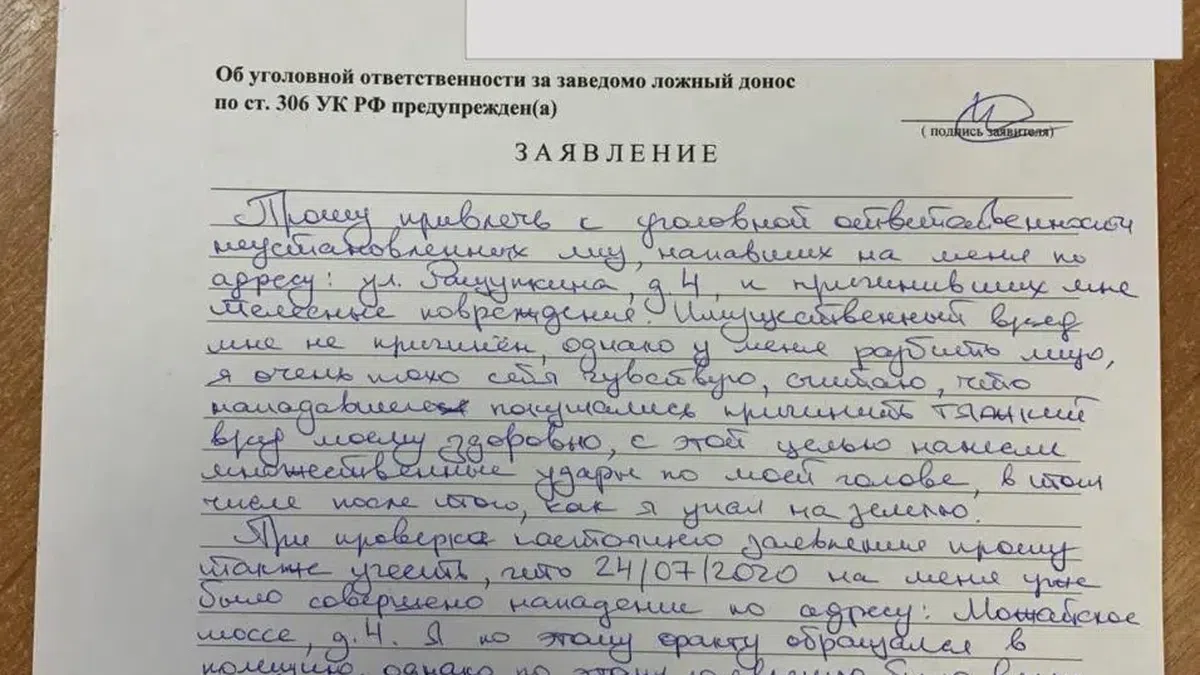 Об уголовной ответственности за заведомо ложный донос
по ст. 306 УК РФ предупрежден(а)
( подпись заявителя)
ЗАЯВЛЕНИЕ
Прошу привлечь к уголовной ответственности
неустановленных лиц, напавших на меня по
адресу: ул. Ращупкина, д 4, и причинивших мне
телесные повреждения. Имущественный вред
мне не причинён, однако у меня разбито лицо,
я очень плохо себя чувствую, считаю, что
нападавшие покушались причинить тяжкий
вред моему здоровью, с этой целью нанесли
множественные удары по моей голове, в том
числе после того, как я упал на землю.
При проверке настоящего заявления прошу
также учесть, что 24/07/2020 на меня уже
было совершено нападение по адресу: Можайское
шоссе, д. 4. Я по этому факту обращался в
полицию, однако по